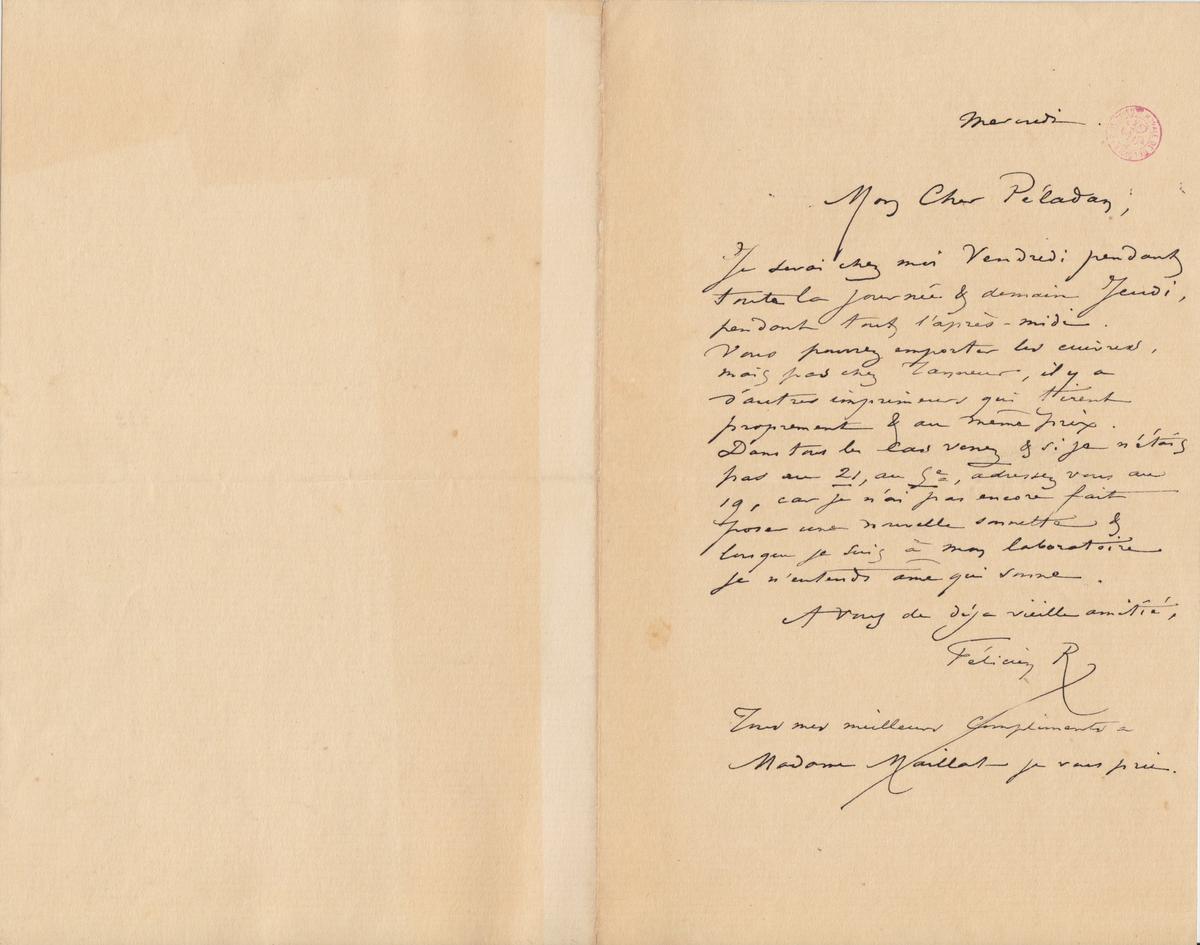 Mercredi.
Mon Cher Péladan,
Je serai chez moi Vendredi pendant
toute la journée & demain Jeudi,
pendant tout l'après-midi.
Vous pourrez emporter les cuivres,
mais pas chez, il y a
d'autres imprimeurs qui tirent
proprement & au même prix.
Dans tous les cas venez & si je n'étais
pas au 21, au 5e, adressez vous au
19, car je n'ai pas encore fait
poser une nouvelle sonnette &
lorsque je suis à mon laboratoire
je n'entends âme qui sonne.
A vous de déja vieille amitié,
Félicien R
Tous mes meilleurs Compliments a
Madame Maillat je vous prie.